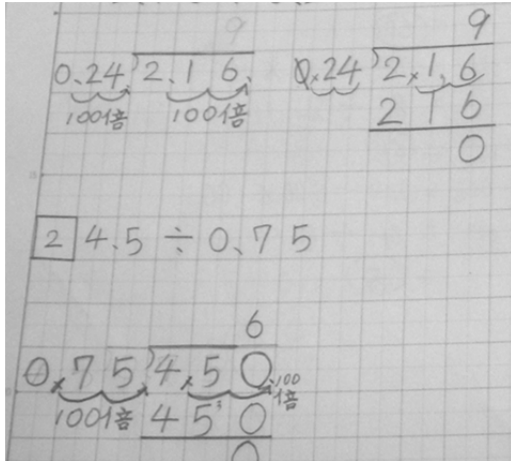 9
0.24)2.16.
100倍 100倍
9
0.24)2.1.6
216
0
2 4.5÷0.75
6
0.75.)4.50.
100倍 100倍
450
0